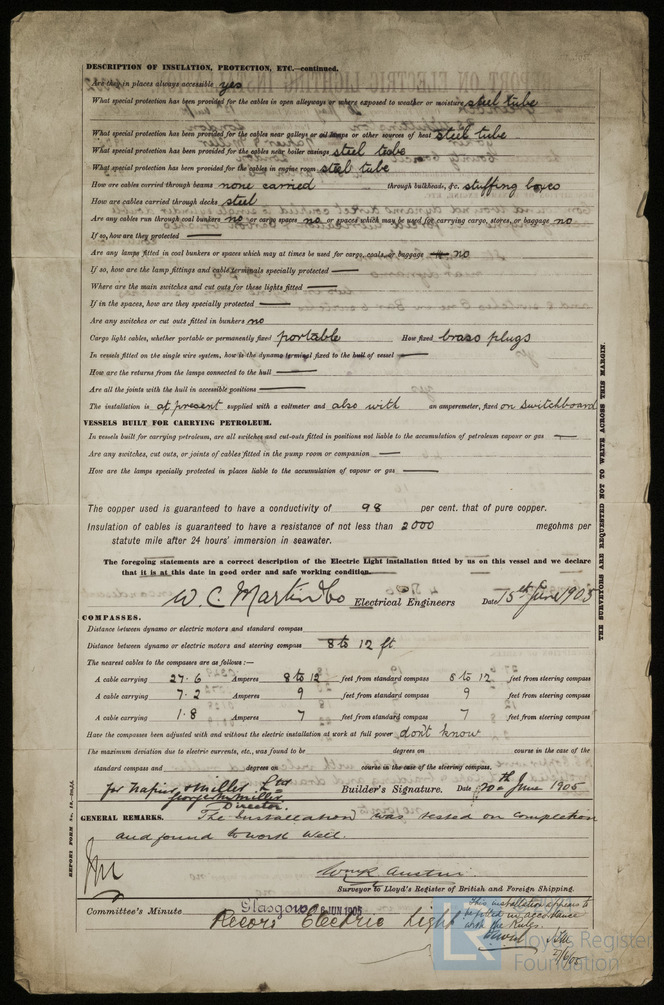 DESCRIPTION OF INSULATION, PROTECTION, ETC.—continued.
Are they in places always accessible yes
What special protection has been provided for the cables in open alleyways or where exposed to weather or moisture steel tube
What special protection has been provided for the cables near galleys or oil lamps or other sources of heat steel tube
What special protection has been provided for the cables near boiler casings steel tube
What special protection has been provided for the cables in engine room steel tube
How are cables carried through beams none carried through bulkheads, &c. stuffing boxes
How are cables carried through decks steel
Are any cables run through coal bunkers no or cargo spaces no or spaces which may be used for carrying cargo, stores, or baggage no
If so, how are they protected —
Are any lamps fitted in coal bunkers or spaces which may at times be used for cargo, coals, or baggage no
If so, how are the lamp fittings and cable terminals specially protected —
Where are the main switches and cut outs for these lights fitted —
If in the spaces, how are they specially protected —
Are any switches or cut outs fitted in bunkers no
Cargo light cables, whether portable or permanently fixed portable How fixed brass plugs
In vessels fitted on the single wire system, how is the dynamo terminal fixed to the hull of vessel —
How are the returns from the lamps connected to the hull —
Are all the joints with the hull in accessible positions —
The installation is at present supplied with a voltmeter and also with an amperemeter, fixed on switchboard
VESSELS BUILT FOR CARRYING PETROLEUM.
In vessels built for carrying petroleum, are all switches and cut-outs fitted in positions not liable to the accumulation of petroleum vapour or gas —
Are any switches, cut outs, or joints of cables fitted in the pump room or companion —
How are the lamps specially protected in places liable to the accumulation of vapour or gas —
The copper used is guaranteed to have a conductivity of 98 per cent. that of pure copper.
Insulation of cables is guaranteed to have a resistance of not less than 2000 megohms per
statute mile after 24 hours' immersion in seawater.
The foregoing statements are a correct description of the Electric Light installation fitted by us on this vessel and we declare
that it is at this date in good order and safe working condition.
W. C. Martin & Co Electrical Engineers Date 15th June 1905
COMPASSES.
Distance between dynamo or electric motors and standard compass
Distance between dynamo or electric motors and steering compass 8 to 12 ft
The nearest cables to the compasses are as follows:—
A cable carrying 27.6 Amperes 8 to 12 feet from standard compass 8 to 12 feet from steering compass
A cable carrying 7.2 Amperes 9 feet from standard compass 9 feet from steering compass
A cable carrying 1.8 Amperes 7 feet from standard compass 7 feet from steering compass
Have the compasses been adjusted with and without the electric installation at work at full power don't know
The maximum deviation due to electric currents, etc., was found to be degrees on course in the case of the
standard compass and degrees on course in the case of the steering compass.
for Napier & Miller Ltd
Director. Builder's Signature. Date 20th June 1905
GENERAL REMARKS. The Installation was tested on completion
and found to work well.
Austin
Surveyor to Lloyd's Register of British and Foreign Shipping.
Committee's Minute Glasgow JUN 1905
Record Electric Light
This installation appears to
be fitted in accordance
with the Rules.
Lloyd's Register
Foundation
THE SURVEYORS ARE REQUESTED NOT TO WRITE ACROSS THIS MARGIN.